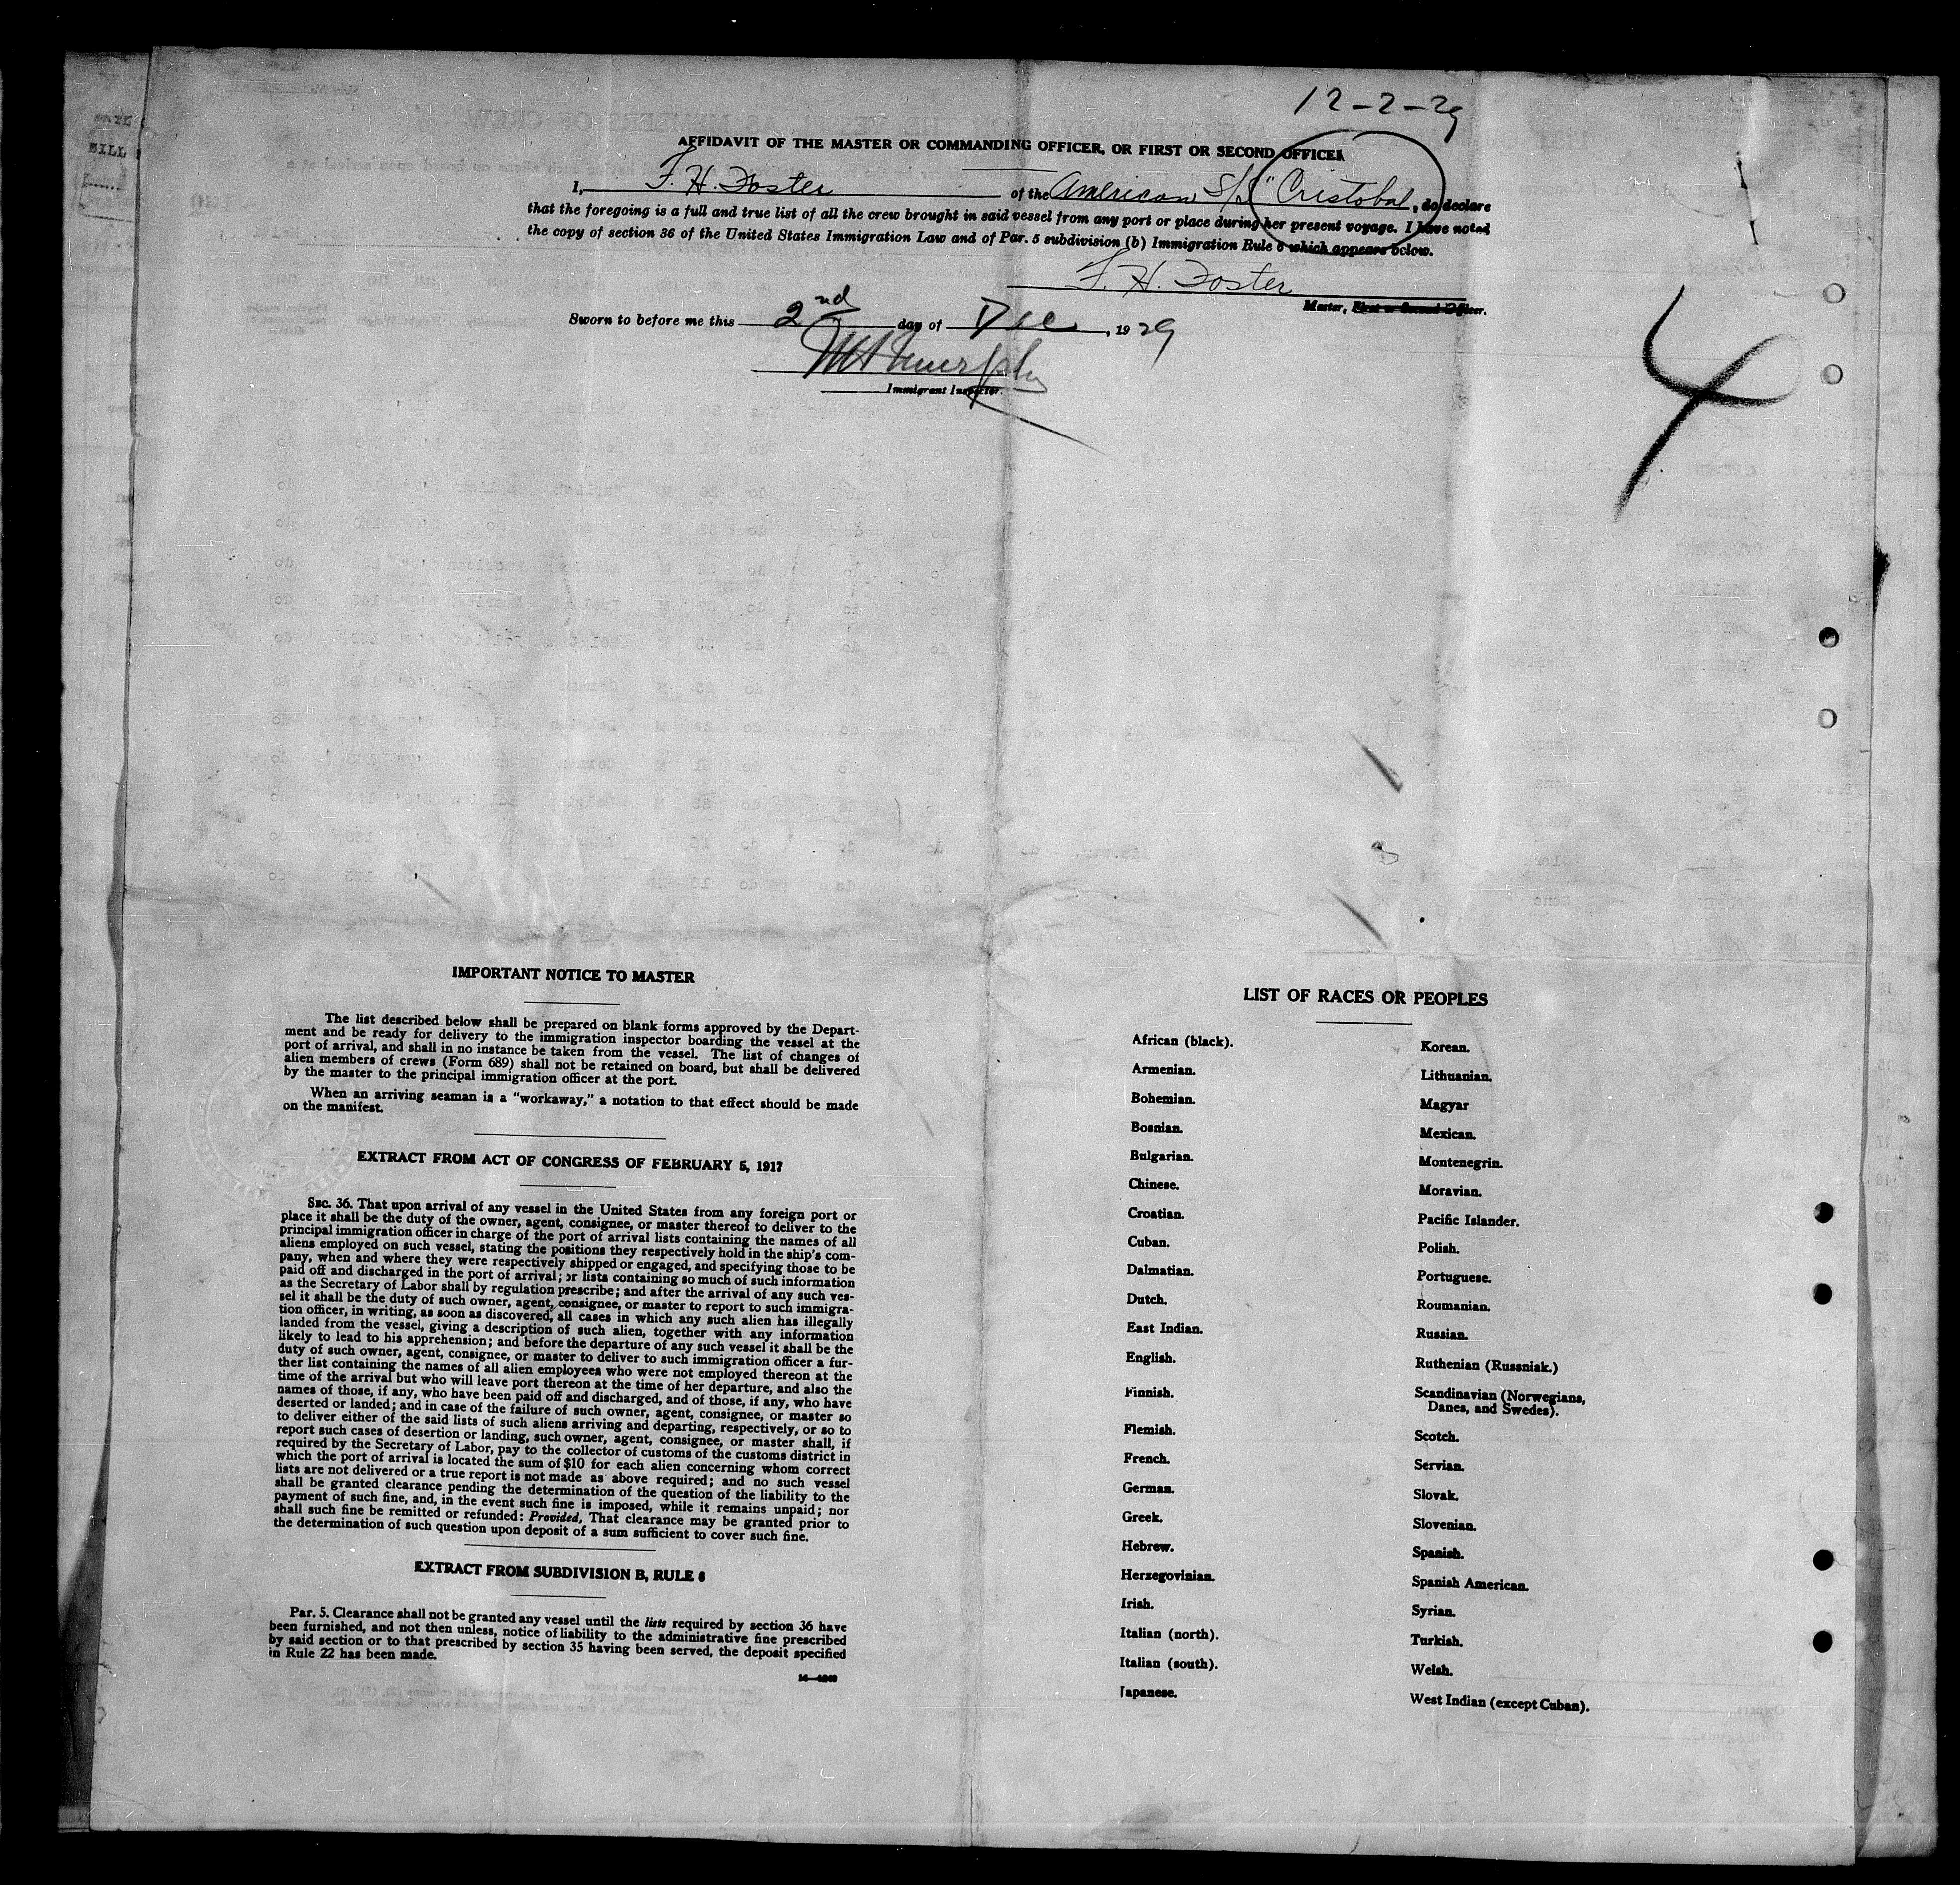 12-2-29
AFFIDAVIT OF THE MASTER OR COMMANDING OFFICER, OR FIRST OR SECOND OFFICER
I, F. H. Foster of the American S/S "Cristobal, do declare
that the foregoing is a full and true list of all the crew brought in said vessel from any port or place during her present voyage. I have noted
the copy of section 36 of the United States Immigration Law and of Par. 5 subdivision (b) Immigration Rule 6 which appears below.
F. H. Foster
Master, First or Second Officer.
Sworn to before me this 2nd day of Dec, 1929
Murphy
Immigrant Inspector.
4
IMPORTANT NOTICE TO MASTER
The list described below shall be prepared on blank forms approved by the Depart-
ment and be ready for delivery to the immigration inspector boarding the vessel at the
port of arrival, and shall in no instance be taken from the vessel. The list of changes of
alien members of crews (Form 689) shall not be retained on board, but shall be delivered
by the master to the principal immigration officer at the port.
When an arriving seaman is a "workaway," a notation to that effect should be made
on the manifest.
EXTRACT FROM ACT OF CONGRESS OF FEBRUARY 5, 1917
SEC. 36. That upon arrival of any vessel in the United States from any foreign port or
place it shall be the duty of the owner, agent, consignee, or master thereof to deliver to the
principal immigration officer in charge of the port of arrival lists containing the names of all
aliens employed on such vessel, stating the positions they respectively hold in the ship's com-
pany, when and where they were respectively shipped or engaged, and specifying those to be
paid off and discharged in the port of arrival; or lists containing so much of such information
as the Secretary of Labor shall by regulation prescribe; and after the arrival of any such ves-
sel it shall be the duty of such owner, agent, consignee, or master to report to such immigra-
tion officer, in writing, as soon as discovered, all cases in which any such alien has illegally
landed from the vessel, giving a description of such alien, together with any information
likely to lead to his apprehension; and before the departure of any such vessel it shall be the
duty of such owner, agent, consignee, or master to deliver to such immigration officer a fur-
ther list containing the names of all alien employees who were not employed thereon at the
time of the arrival but who will leave port thereon at the time of her departure, and also the
names of those, if any, who have been paid off and discharged, and of those, if any, who have
deserted or landed; and in case of the failure of such owner, agent, consignee, or master so
to deliver either of the said lists of such aliens arriving and departing, respectively, or so to
report such cases of desertion or landing, such owner, agent, consignee, or master shall, if
required by the Secretary of Labor, pay to the collector of customs of the customs district in
which the port of arrival is located the sum of $10 for each alien concerning whom correct
lists are not delivered or a true report is not made as above required; and no such vessel
shall be granted clearance pending the determination of the question of the liability to the
payment of such fine, and, in the event such fine is imposed, while it remains unpaid; nor
shall such fine be remitted or refunded: Provided, That clearance may be granted prior to
the determination of such question upon deposit of a sum sufficient to cover such fine.
EXTRACT FROM SUBDIVISION B, RULE 6
Par. 5. Clearance shall not be granted any vessel until the lists required by section 36 have
been furnished, and not then unless, notice of liability to the administrative fine prescribed
by said section or to that prescribed by section 35 having been served, the deposit specified
in Rule 22 has been made.
LIST OF RACES OR PEOPLES
African (black).
Armenian.
Bohemian.
Bosnian.
Bulgarian.
Chinese.
Croatian.
Cuban.
Dalmatian.
Dutch.
East Indian.
English.
Finnish.
Flemish.
French.
German.
Greek.
Hebrew.
Herzegovinian.
Irish.
Italian (north).
Italian (south).
Japanese.
Korean.
Lithuanian.
Magyar
Mexican.
Montenegrin.
Moravian.
Pacific Islander.
Polish.
Portuguese.
Roumanian.
Russian.
Ruthenian (Russniak.)
Scandinavian (Norwegians,
Danes, and Swedes).
Scotch.
Servian.
Slovak.
Slovenian.
Spanish.
Spanish American.
Syrian.
Turkish.
Welsh.
West Indian (except Cuban).